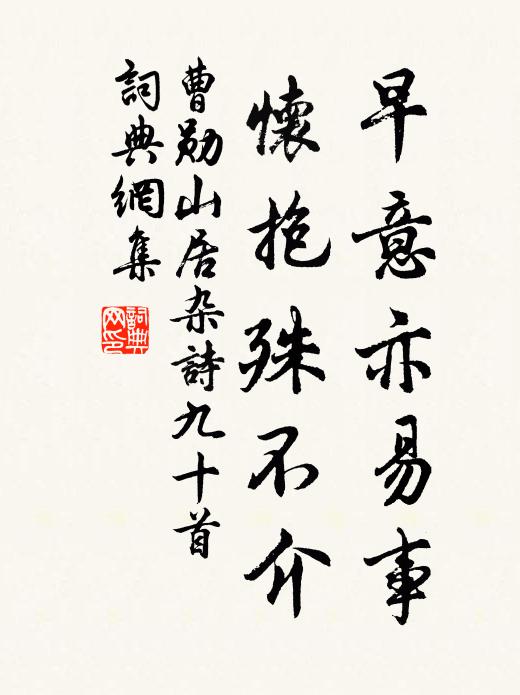 早意亦易事
懷抱殊不介
曹勛山居杂詩九十首
詞典網集
詞典网印